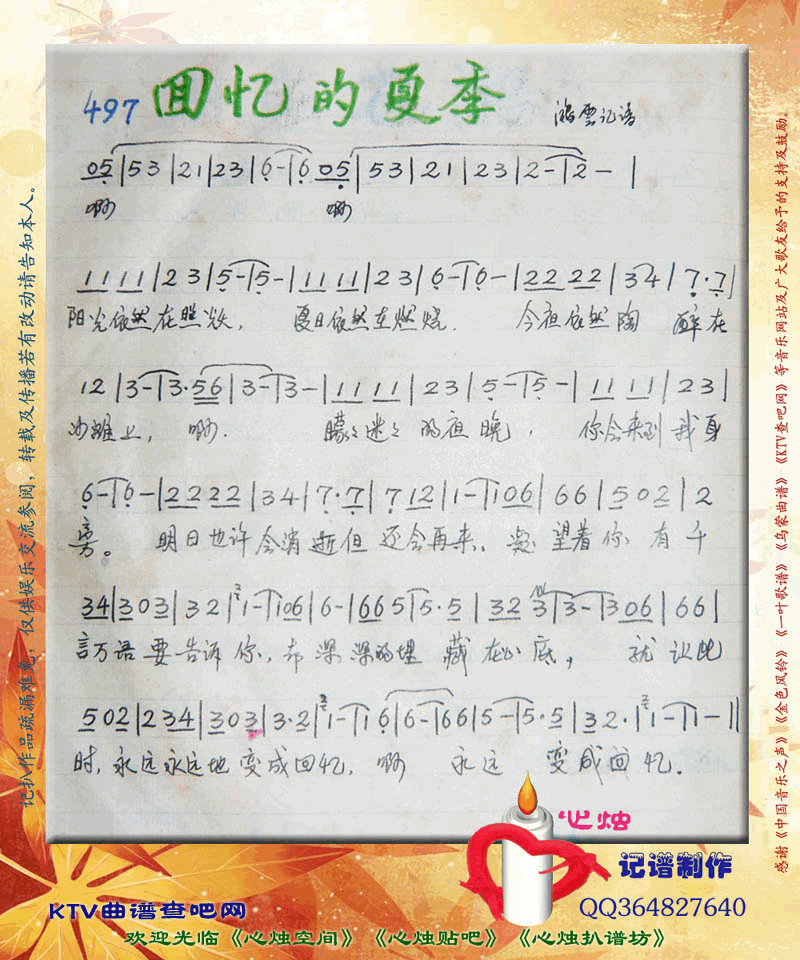 497 回忆的夏季 鸿雲记谱
05|53|21|23|6-|6 05|53|21|23|2-|2-|
啊 啊
1111|23|5-|5-|1111|23|6-|6-|2222|34|7·7|
阳光依然在照耀， 夏日依然在燃烧． 今夜依然陶 醉在
12|3-|3·56|3-|3-|1111|23|5-|5-|1111|23|
沙滩上， 啊． 朦朦迷迷的夜晚， 你会来到我身
6-|6-|2222|34|7·7|712|1-|106|66|502|2
旁。 明日也许会消逝但还会再来、凝望着你 有千
34|303|32|1-|106|6-|665|5·5|32 3|3-|306|66|
言万语要告诉你，却深深的埋藏在心底， 就让此
502|234|303|3·2|1-|16|6-|66|5-|5·5|32·|1-|1-||
时，永远永远地变成回忆，啊 永远 变成回忆．
记扒作品疏漏难免，仅供娱乐交流参阅，转载及传播若有改动请告知本人。
感谢《中国音乐之声》《金色风铃》《一叶歌谱》《乌蒙曲谱》《KTV查吧网》等音乐网站及广大歌友给予的支持及鼓励。
心烛
记谱制作
KTV曲谱查吧网 QQ364827640
欢迎光临《心烛空间》《心烛贴吧》《心烛扒谱坊》